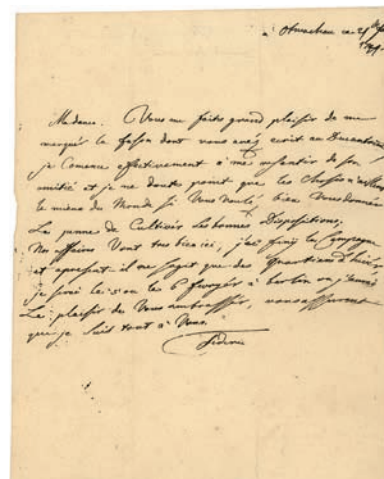 a Olmuchau ce 21
Madame. Vous me faite grand plaisir de me
marquér la fasson dont vous avés ecrit au
je Comence effectivement a me resantir de son
amitié et je ne doute point que les Choses n'aille
le mieux du Monde si Vous Voulés bien Vous donnér
La penne de Cultivér Les bonnes Dispositions,
Nos affaires Vont tres bien ici, j'ai finy la Campagne
et apresent il ne s'agit que des Quartiers d'hiver
je serai le 5 ou les 6 a berlin ou j'aurai
Le plaisir de Vous ambrassér, vous assurant
que je suis tout a Vous.
Federic